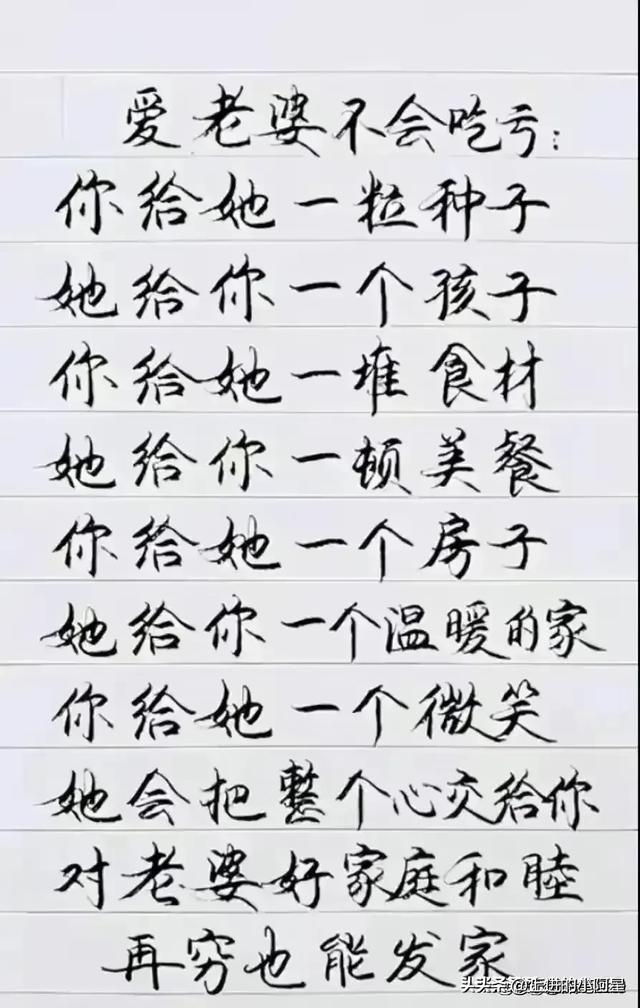 爱老婆不会吃亏:
你给她一粒种子
她给你一个孩子
你给她一堆食材
她给你一顿美餐
你给她一个房子
她给你一个温暖的家
你给她一个微笑
她会把整个心交给你
对老婆好家庭和睦
再穷也能发家
头条
的小阿星